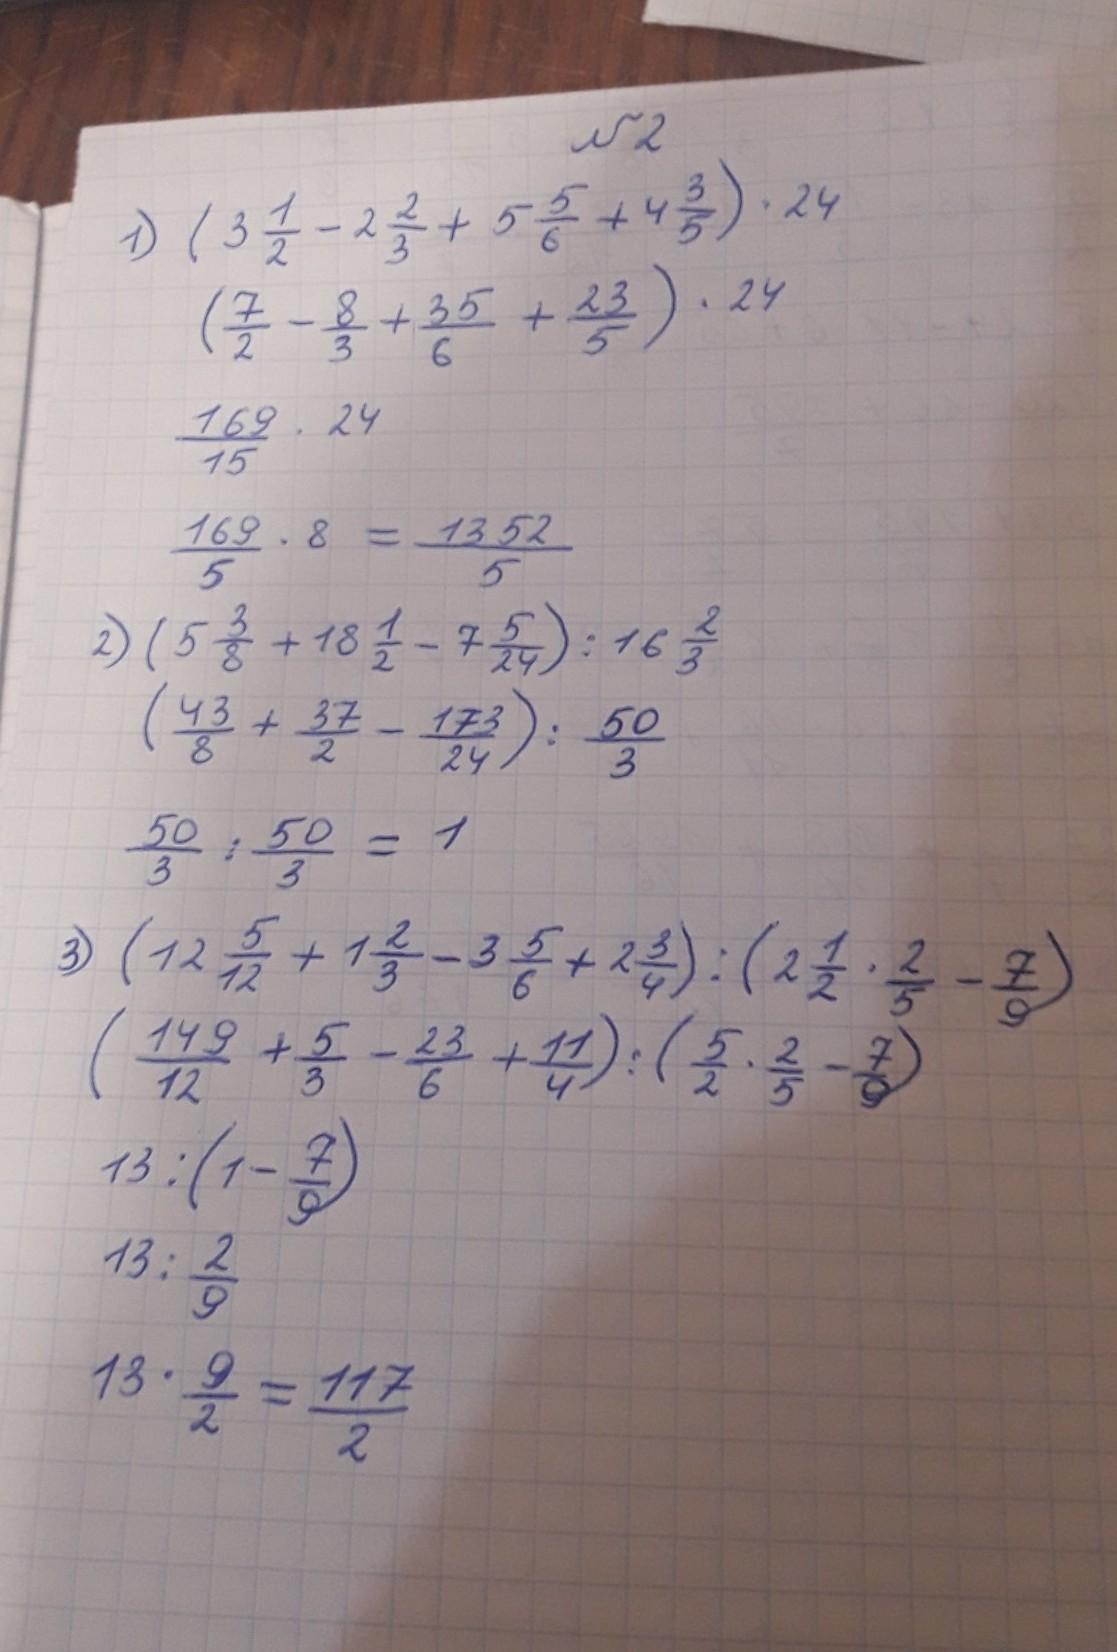 №2
1) (3 1/2 - 2 2/3 + 5 5/6 + 4 3/5) · 24
(7/2 - 8/3 + 35/6 + 23/5) · 24
169/15 · 24
169/5 · 8 = 1352/5
2) (5 3/8 + 18 1/2 - 7 5/24) : 16 2/3
(43/8 + 37/2 - 173/24) : 50/3
50/3 : 50/3 = 1
3) (12 5/12 + 1 2/3 - 3 5/6 + 2 3/4) : (2 1/2 · 2/5 - 7/9)
(149/12 + 5/3 - 23/6 + 11/4) : (5/2 · 2/5 - 7/9)
13 : (1 - 7/9)
13 : 2/9
13 · 9/2 = 117/2